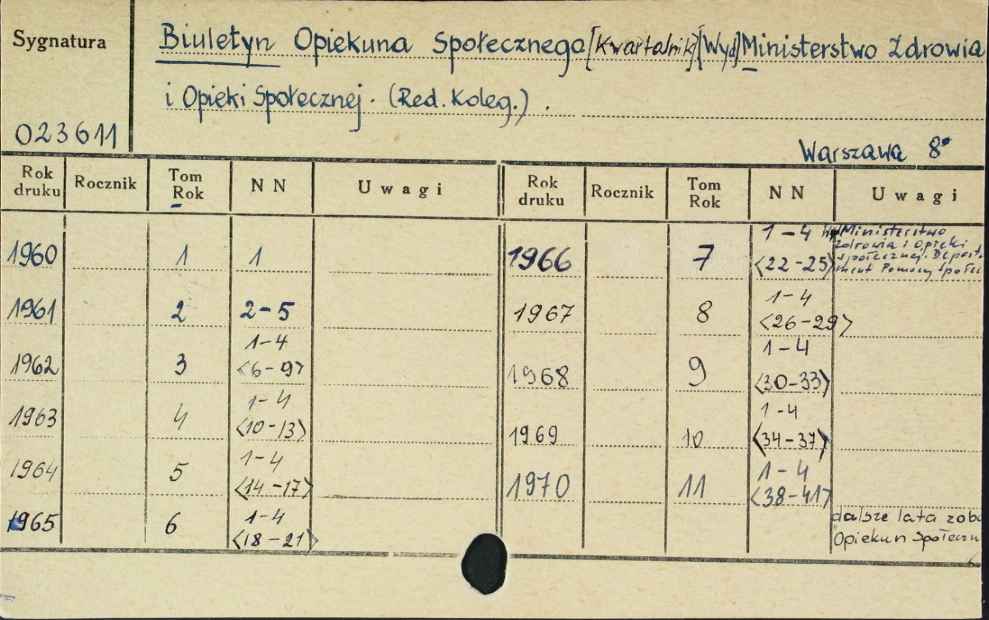 Sygnatura
Biuletyn Opiekuna Społecznego [Kwartalnik] [Wyd] Ministerstwo Zdrowia
i Opieki Społecznej. (Red. Koleg.).
023611
Warszawa 8°
Rok druku Rocznik Tom Rok NN Uwagi Rok druku Rocznik Tom Rok NN Uwagi
1960 1 1
1961 2 2-5
1962 3 1-4 <6-9>
1963 4 1-4 <10-13>
1964 5 1-4 <14-17>
1965 6 1-4 <18-21>
1966 7 1-4 <22-25> Wyd Ministerstwo
Zdrowia i Opieki
Społecznej. Depart-
ment Pomocy Społecz
1967 8 1-4 <26-29>
1968 9 1-4 <30-33>
1969 10 1-4 <34-37>
1970 11 1-4 <38-41>
dalsze lata zob
Opiekun Społeczn